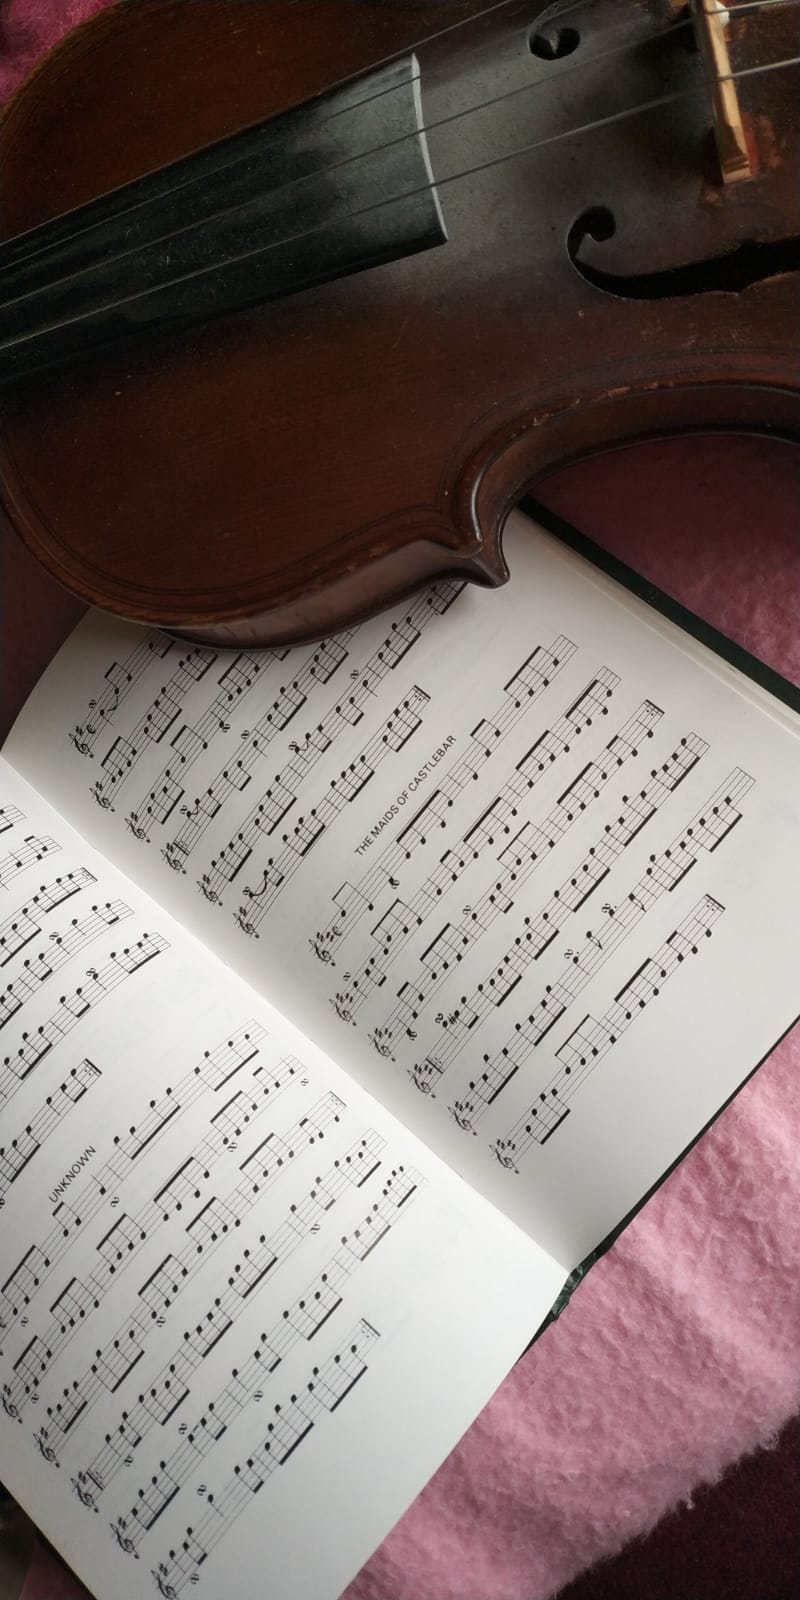 UNKNOWN
THE MAIDS OF CASTLEBAR